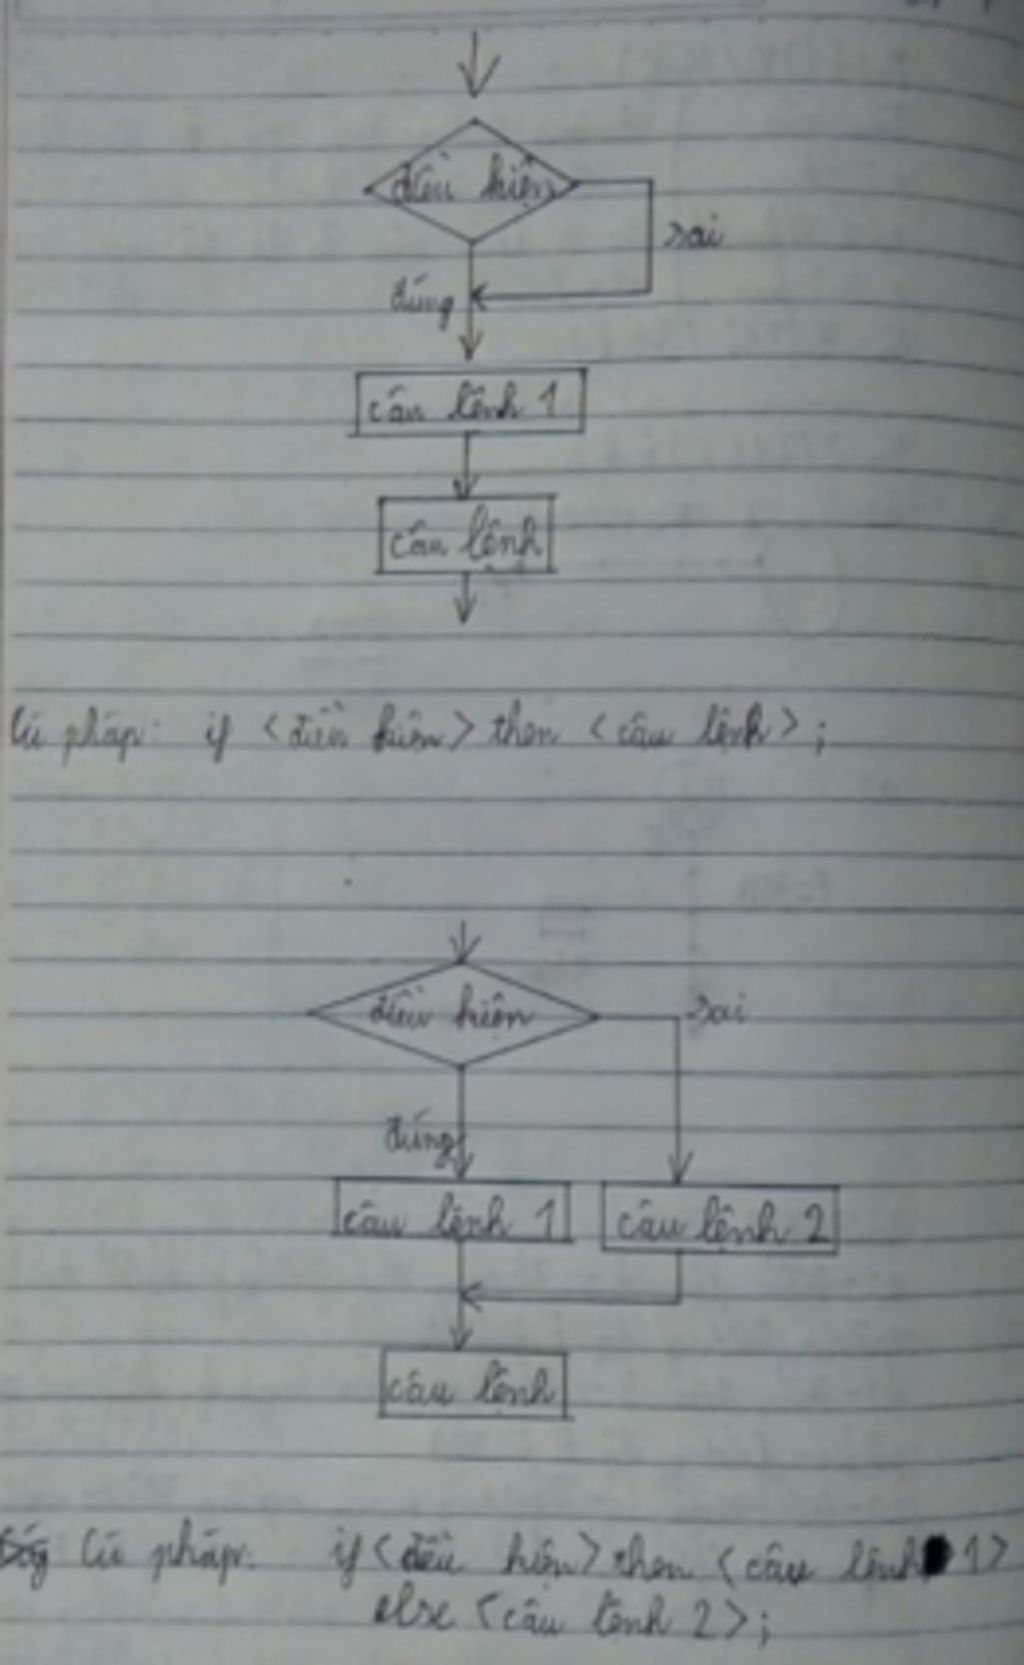 điều kiện
sai
đúng
câu lệnh 1
câu lệnh
Cú pháp: if <điều kiện> then <câu lệnh>;
điều kiện
sai
đúng
câu lệnh 1
câu lệnh 2
câu lệnh
Cú pháp: if <điều kiện> then <câu lệnh 1>
else <câu lệnh 2>;